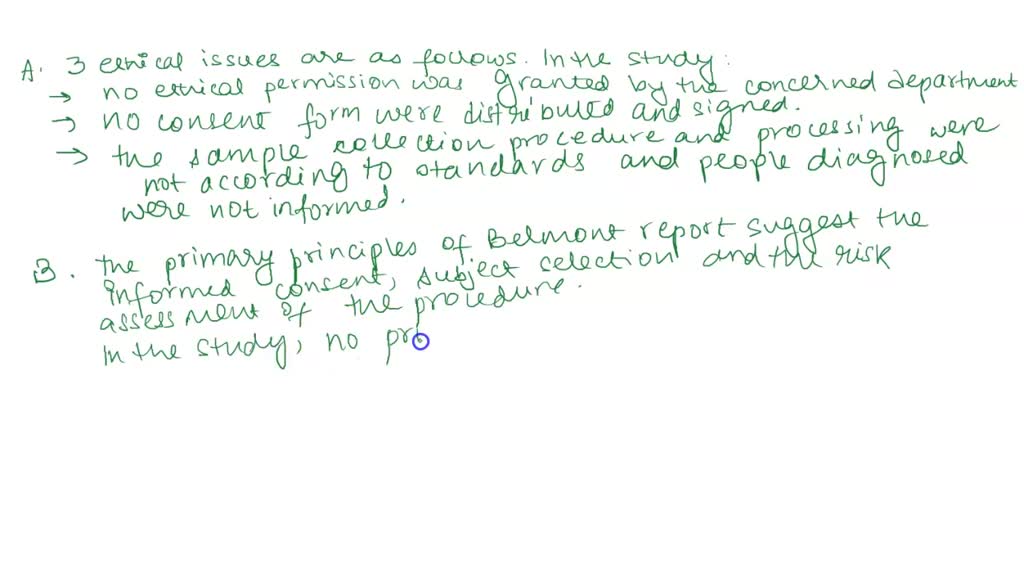 A. 3 ethical issues are as follows. In the study:
→ no ethical permission was granted by the concerned department
→ no consent form were distributed and signed.
→ the sample collection procedure and processing were
not according to standards and people diagnosed
were not informed.
B. the primary principles of Belmont report suggest the
informed consent, subject selection and the risk
assessment of the procedure.
In the study, no pr